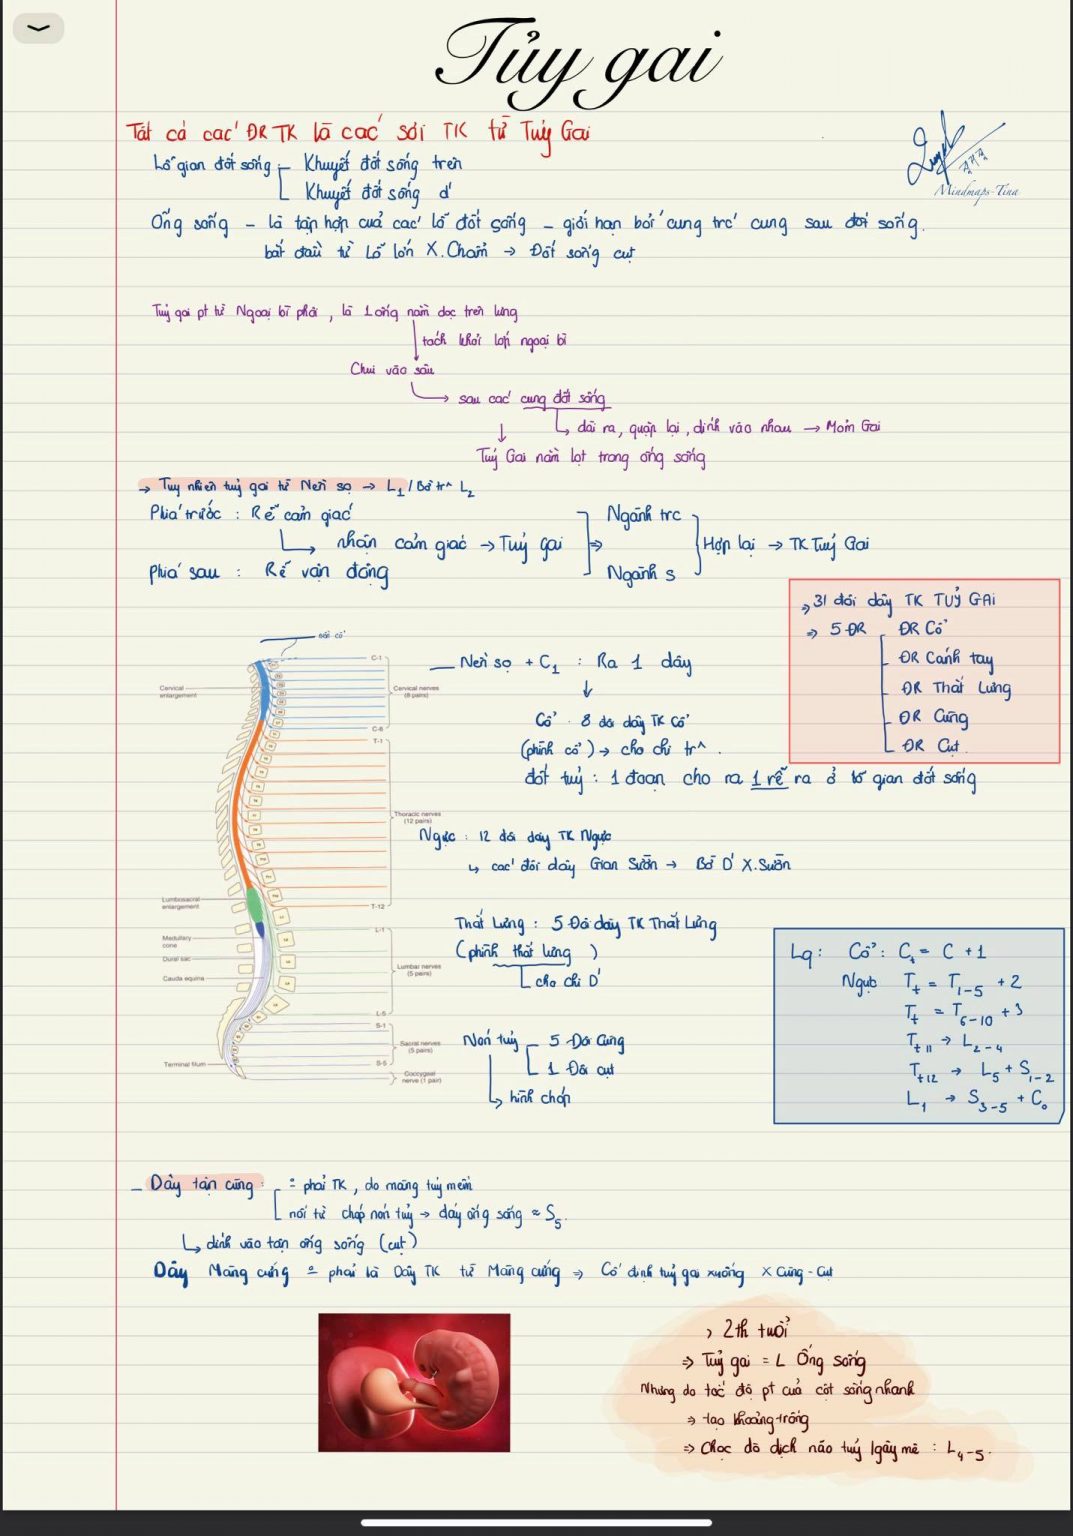 Tủy gai
Tất cả các ĐR TK là các sợi TK từ Tuỷ Gai
Mindmaps-Tina
Lỗ gian đốt sống - Khuyết đốt sống trên
Khuyết đốt sống d'
Ống sống - là tập hợp của các lỗ đốt sống - giới hạn bởi cung trc' cung sau đốt sống.
bắt đầu từ Lỗ lớn X.Chẩm → Đốt sống cụt
Tuỷ gai pt từ Ngoại bì phôi, là 1 ống nằm dọc trên lưng
tách khỏi lớp ngoại bì
Chui vào sâu
sau các cung đốt sống
dài ra, quặp lại, dính vào nhau → Mỏm Gai
Tuỷ Gai nằm lọt trong ống sống
→ Tuy nhiên tuỷ gai từ Nền sọ → L1 / Bờ tr^ L2
Phía trước : Rễ cảm giác
nhận cảm giác → Tuỷ gai
Phía sau : Rễ vận động
⇒ Ngành trc
Ngành s
Hợp lại → TK Tuỷ Gai
⇒ 31 đôi dây TK TUỶ GAI
⇒ 5 ĐR
ĐR Cổ
ĐR Cánh tay
ĐR Thắt Lưng
ĐR Cùng
ĐR Cụt.
C-1
Cervical enlargement
Cervical nerves (8 pairs)
C-8
T-1
Thoracic nerves (12 pairs)
T-12
Lumbosacral enlargement
L-1
Medullary cone
Dural sac
Cauda equina
Lumbar nerves (5 pairs)
L-5
S-1
Sacral nerves (5 pairs)
S-5
Terminal filum
Coccygeal nerve (1 pair)
Nền sọ + C1 : Ra 1 dây
Cổ : 8 đôi dây TK Cổ
(phình cổ) → cho chi tr^.
đốt tuỷ : 1 đoạn cho ra 1 rễ ra ở lỗ gian đốt sống
Ngực : 12 đôi dây TK Ngực
↳ các đôi dây Gian Sườn → Bờ D' X.Sườn
Thắt Lưng : 5 Đôi dây TK Thắt Lưng
(phình thắt lưng)
cho chi D'
Nón tuỷ
5 Đôi Cùng
1 Đôi cụt
hình chóp
Lq: Cổ : Ct = C + 1
Ngực Tt = T1-5 + 2
Tt = T6-10 + 3
Tt 11 → L2-4
Tt 12 → L5 + S1-2
L1 → S3-5 + Co
- Dây tận cùng : ≠ phải TK, do màng tuỷ mềm
nối từ chóp nón tuỷ → đáy ống sống ≈ S5.
↳ dính vào tận ống sống (cụt)
Dây Màng cứng ≠ phải là Dây TK từ Màng cứng ⇒ Cố định tuỷ gai xuống X Cùng - Cụt
> 2th tuổi
⇒ Tuỷ gai = L Ống sống
Nhưng do tốc độ pt của cột sống nhanh
⇒ tạo khoảng trống
⇒ Chọc dò dịch não tuỷ / gây mê : L4-5.